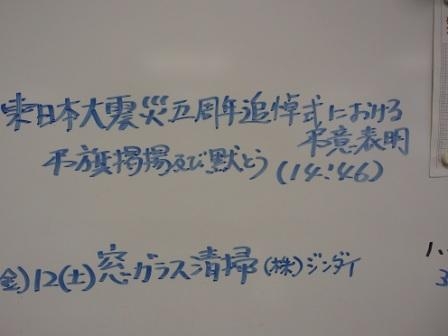 東日本大震災五周年追悼式における
弔意表明
弔旗掲揚及び黙とう(14:46)
金)12(土)窓ガラス清掃(株)ジンダイ